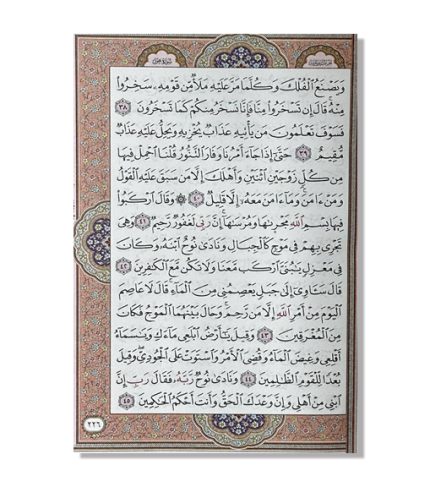 سُورَةُ هُودٍ
وَيَصْنَعُ ٱلْفُلْكَ وَكُلَّمَا مَرَّ عَلَيْهِ مَلَأٌ مِّن قَوْمِهِۦ سَخِرُوا۟
مِنْهُ ۚ قَالَ إِن تَسْخَرُوا۟ مِنَّا فَإِنَّا نَسْخَرُ مِنكُمْ كَمَا تَسْخَرُونَ ٣٨
فَسَوْفَ تَعْلَمُونَ مَن يَأْتِيهِ عَذَابٌ يُخْزِيهِ وَيَحِلُّ عَلَيْهِ عَذَابٌ
مُّقِيمٌ ٣٩ حَتَّىٰٓ إِذَا جَآءَ أَمْرُنَا وَفَارَ ٱلتَّنُّورُ قُلْنَا ٱحْمِلْ فِيهَا
مِن كُلٍّ زَوْجَيْنِ ٱثْنَيْنِ وَأَهْلَكَ إِلَّا مَن سَبَقَ عَلَيْهِ ٱلْقَوْلُ
وَمَنْ ءَامَنَ ۚ وَمَآ ءَامَنَ مَعَهُۥٓ إِلَّا قَلِيلٌ ٤٠ ۞ وَقَالَ ٱرْكَبُوا۟
فِيهَا بِسْمِ ٱللَّهِ مَجْر۪ىٰهَا وَمُرْسَىٰهَآ ۚ إِنَّ رَبِّى لَغَفُورٌ رَّحِيمٌ ٤١ وَهِىَ
تَجْرِى بِهِمْ فِى مَوْجٍ كَٱلْجِبَالِ وَنَادَىٰ نُوحٌ ٱبْنَهُۥ وَكَانَ
فِى مَعْزِلٍ يَٰبُنَىَّ ٱرْكَب مَّعَنَا وَلَا تَكُن مَّعَ ٱلْكَٰفِرِينَ ٤٢
قَالَ سَـَٔاوِىٓ إِلَىٰ جَبَلٍ يَعْصِمُنِى مِنَ ٱلْمَآءِ ۚ قَالَ لَا عَاصِمَ
ٱلْيَوْمَ مِنْ أَمْرِ ٱللَّهِ إِلَّا مَن رَّحِمَ ۚ وَحَالَ بَيْنَهُمَا ٱلْمَوْجُ فَكَانَ
مِنَ ٱلْمُغْرَقِينَ ٤٣ وَقِيلَ يَٰٓأَرْضُ ٱبْلَعِى مَآءَكِ وَيَٰسَمَآءُ
أَقْلِعِى وَغِيضَ ٱلْمَآءُ وَقُضِىَ ٱلْأَمْرُ وَٱسْتَوَتْ عَلَى ٱلْجُودِىِّ ۖ وَقِيلَ
بُعْدًا لِّلْقَوْمِ ٱلظَّٰلِمِينَ ٤٤ وَنَادَىٰ نُوحٌ رَّبَّهُۥ فَقَالَ رَبِّ إِنَّ
ٱبْنِى مِنْ أَهْلِى وَإِنَّ وَعْدَكَ ٱلْحَقُّ وَأَنتَ أَحْكَمُ ٱلْحَٰكِمِينَ ٤٥
٢٢٦